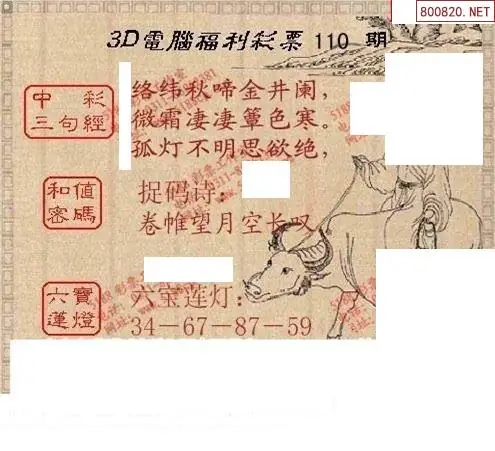 800820.NET
3D電腦福利彩票 110 期
中彩
三句經
络纬秋啼金井阑，
微霜凄凄簟色寒。
孤灯不明思欲绝，
和值
密碼
捉码诗：
卷帷望月空长叹
六寶
蓮燈
六宝莲灯：
34—67—87—59